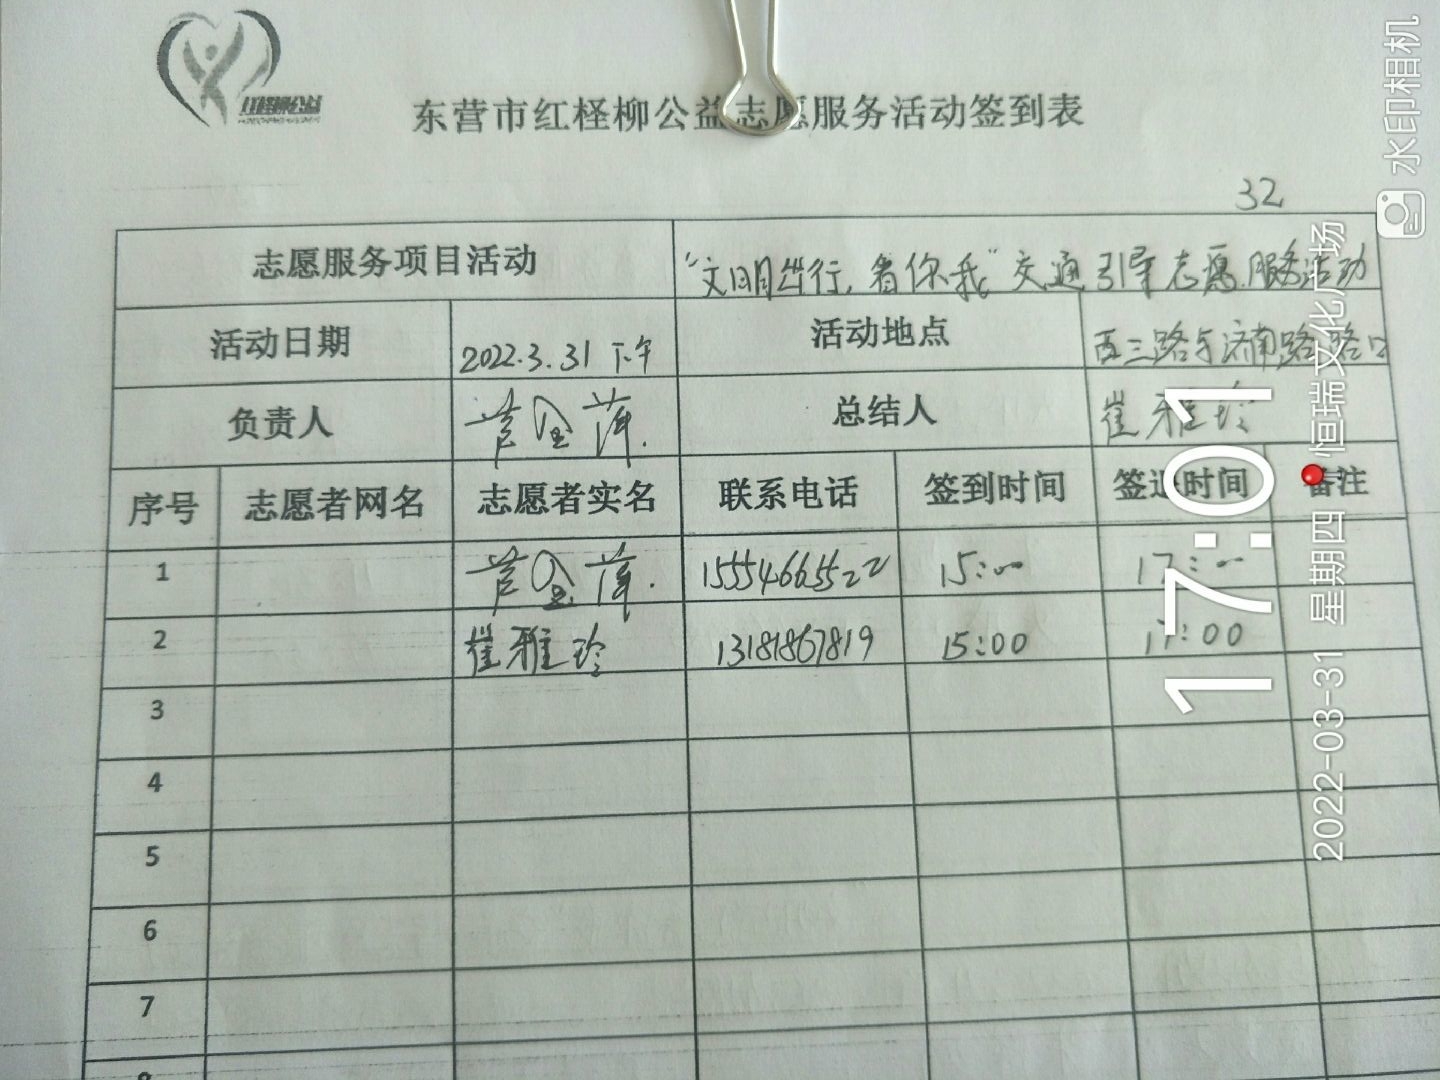 红柽柳公益
东营市红柽柳公益志愿服务活动签到表
32
志愿服务项目活动 “文明出行,看你我”交通引导志愿服务活动
活动日期 2022.3.31 下午 活动地点 西三路与济南路路口
负责人 总结人 崔雅玲
序号 志愿者网名 志愿者实名 联系电话 签到时间 签退时间 备注
1 15554665522 15:00 17:00
2 崔雅玲 13181867819 15:00 17:00
3
4
5
6
7
8
水印相机
17:01
2022-03-31 星期四 恒瑞文化广场